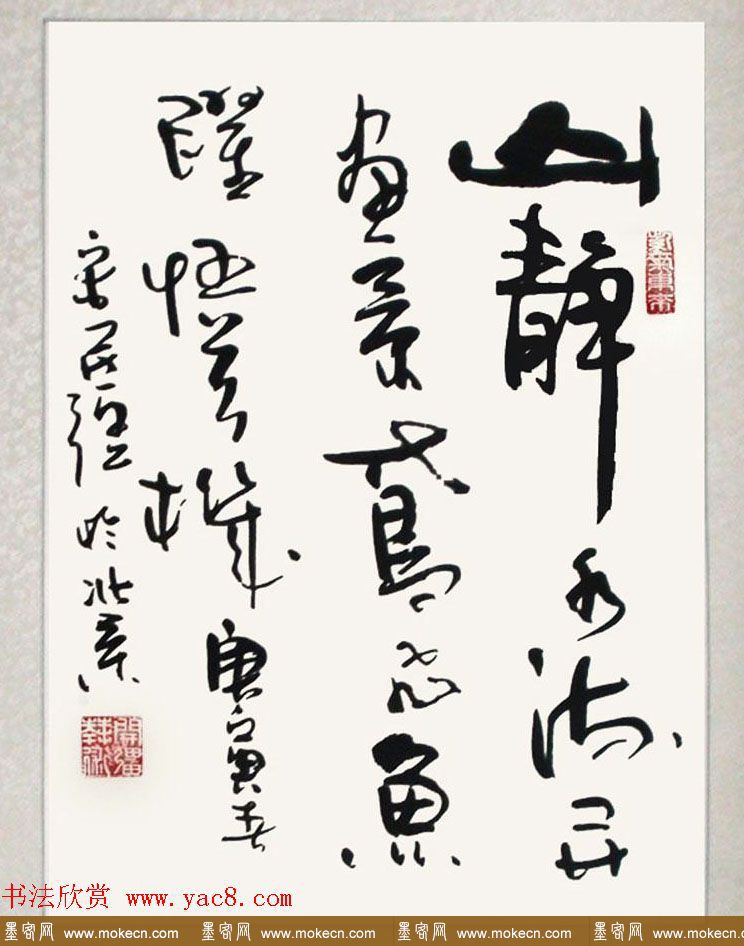 山靜水流开
畫景鳶飛魚
躍悟機庚寅春
於北京
书法欣赏 www.yac8.com
墨客网 www.mokecn.com 墨客网 www.mokecn.com 墨客网 www.mokecn.com 墨客网 www.mokecn.com